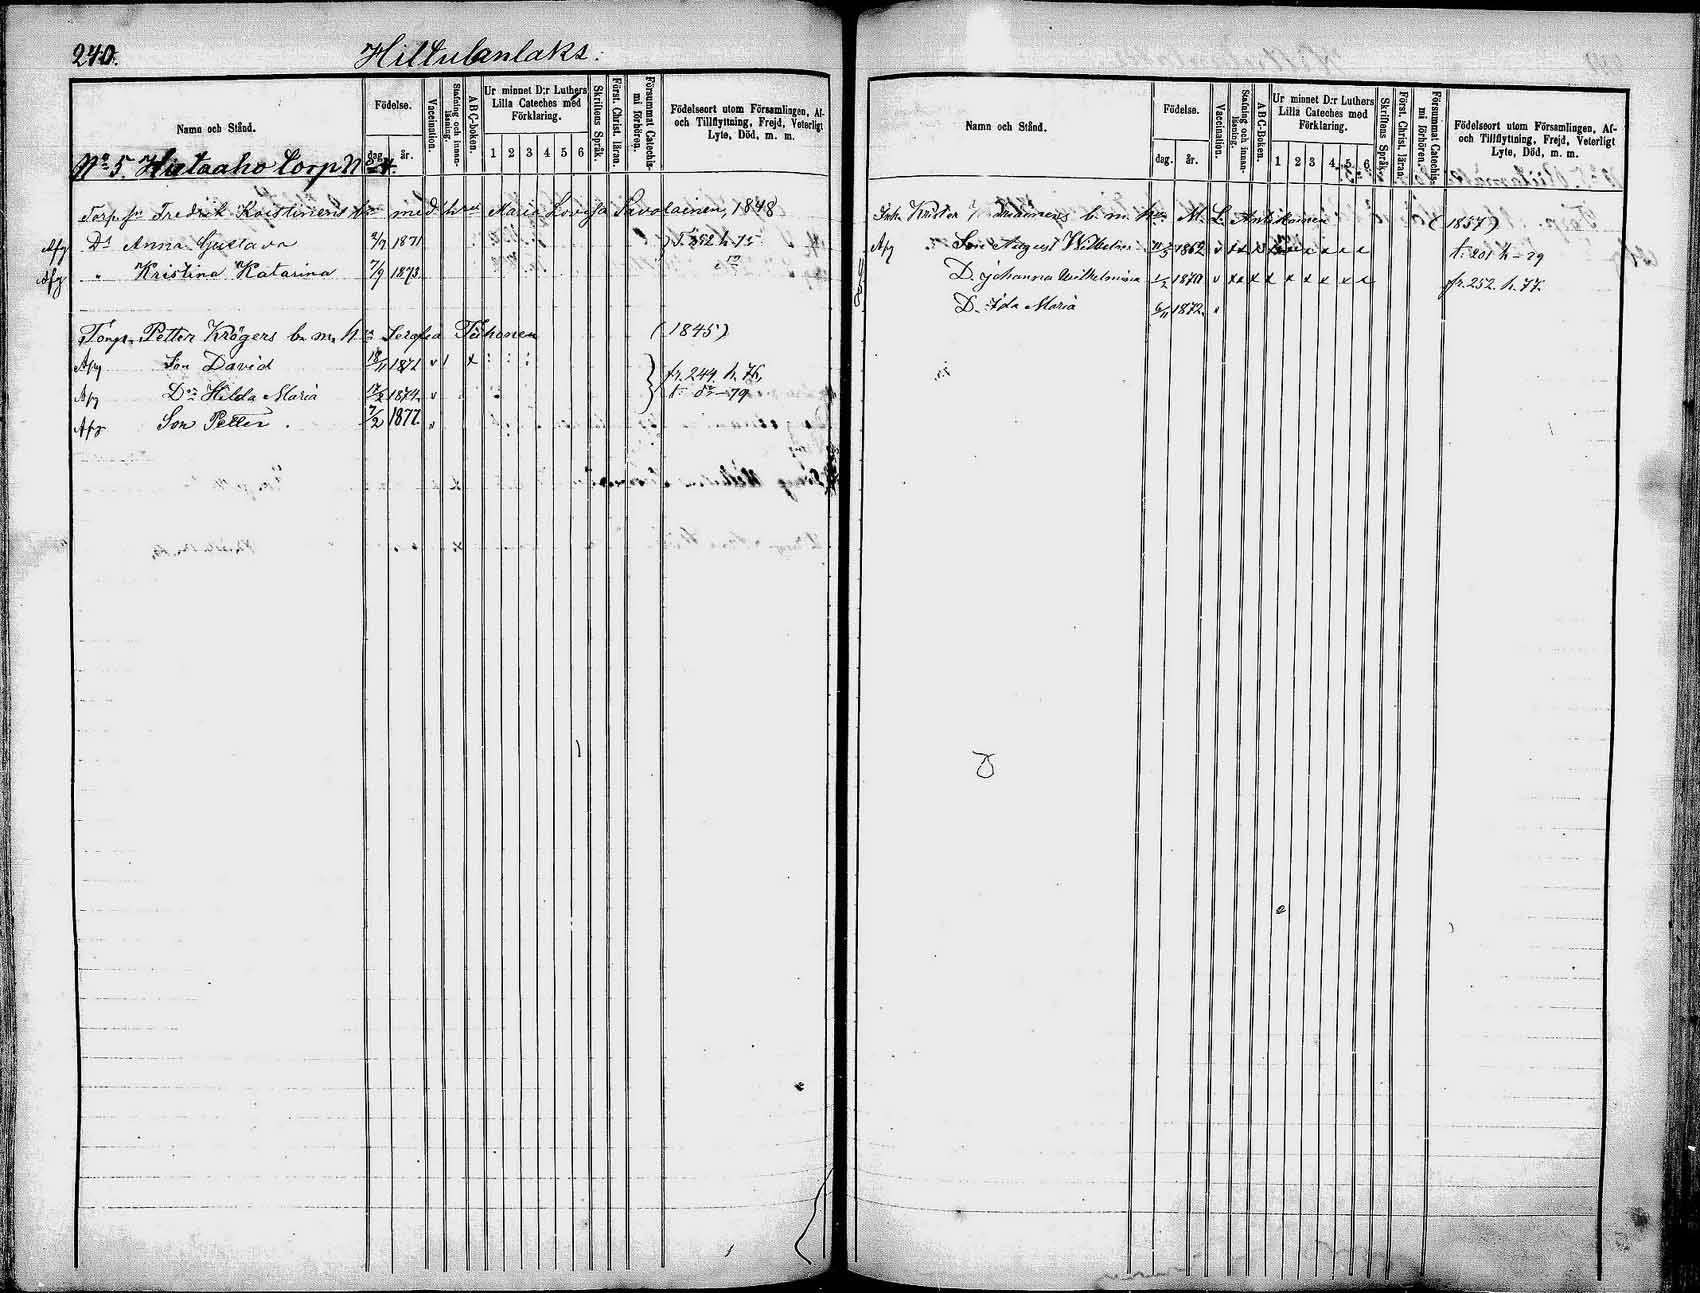 240.
Hiltulanlaks.
Namn och Stånd.
Födelse.
dag.
år.
Vaccination.
Stafning och innan-läsning.
ABC-boken.
Ur minnet D:r Luthers Lilla Cateches med Förklaring.
1 2 3 4 5 6
Skriftens Språk.
Först. Christ. läran.
Försummat Catechis-mi förhören.
Födelseort utom Församlingen, Af-
och Tillflyttning, Frejd, Veterligt
Lyte, Död, m. m.
No 5. Hietaaho torp No 4.
Torp. Fredrik Koistinens bn med hru Maria Lovisa Savolainen, 1848
Afg Dr Anna Gustava 2/7 1871 252 h 75
Afg " Kristina Katarina 7/9 1873 do
Torp. Petter Krögers b. m. h Serafia Tiihonen (1845)
Afg Son David 18/11 1872 v 1 x fr. 249. h. 76,
Afg Dr Hilda Maria 17/2 1874 v t. do -79
Afg Son Petter. 7/2 1877. "
Namn och Stånd.
Födelse.
dag.
år.
Vaccination.
Stafning och innan-läsning.
ABC-Boken.
Ur minnet D:r Luthers Lilla Cateches med Förklaring.
1 2 3 4 5 6
Skriftens Språk.
Först. Christ. lärna.
Försummat Catechis-mi förhören.
Födelseort utom Församlingen, Af-
och Tillflyttning, Frejd, Veterligt
Lyte, Död, m. m.
Inh. Krister b. m. h M. L. Antikainen (1857)
Afg Son August Wilhelm 1862 v t. 201 h -79
D. Johanna Wilhelmina 1/2 1870 v fr. 252. h. 77.
D. Ida Maria 6/11 1872. "